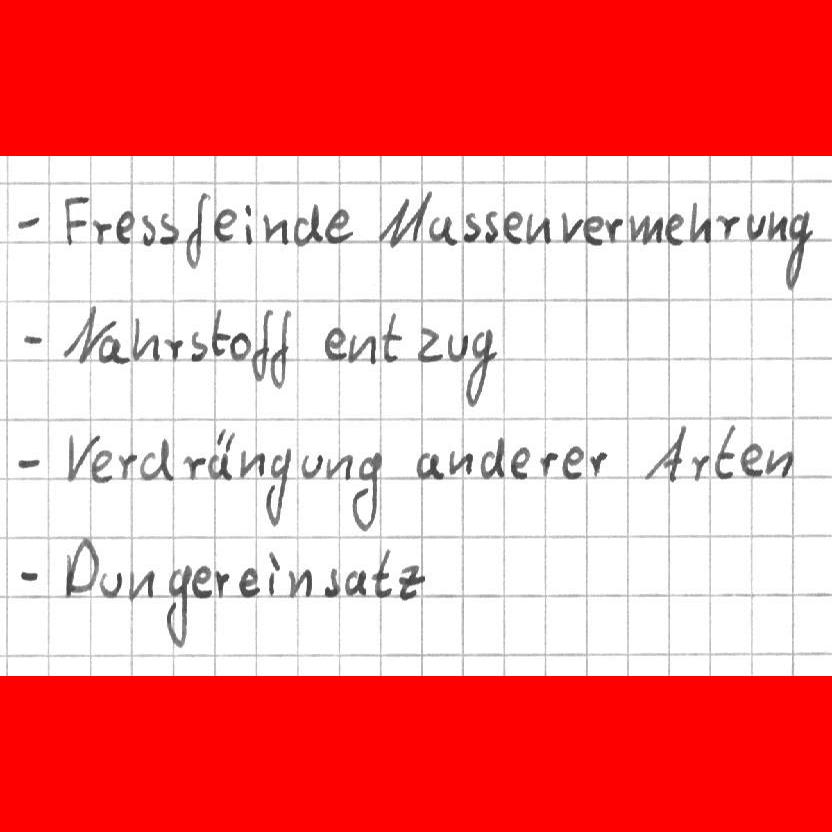 - Fressfeinde Massenvermehrung
- Nahrstoff entzug
- Verdrängung anderer Arten
- Dungereinsatz